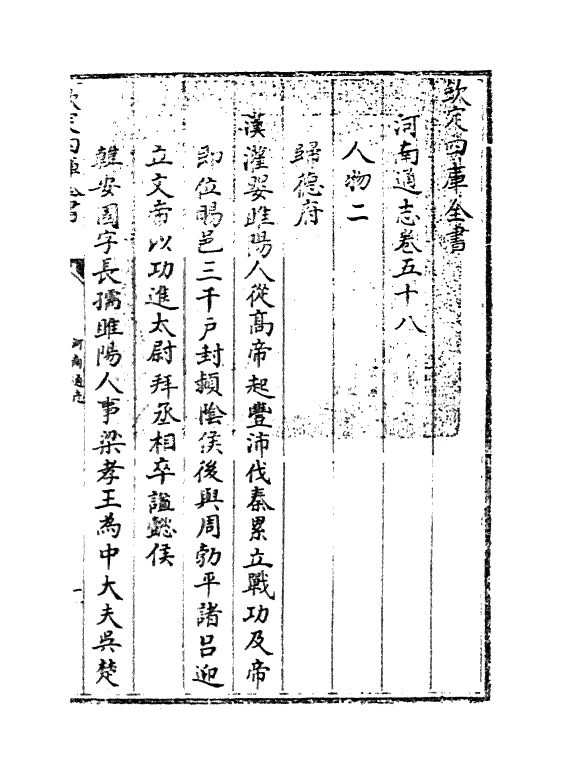 欽定四庫全書
河南通志卷五十八
人物二
歸德府
漢灌嬰睢陽人從髙帝起豐沛伐秦累立戰功及帝
即位賜邑三千戶封潁隂侯後與周勃平諸呂迎
立文帝以功進太尉拜丞相卒諡懿侯
韓安國字長孺睢陽人事梁孝王為中大夫吳楚
欽定四庫全書
河南通志
一